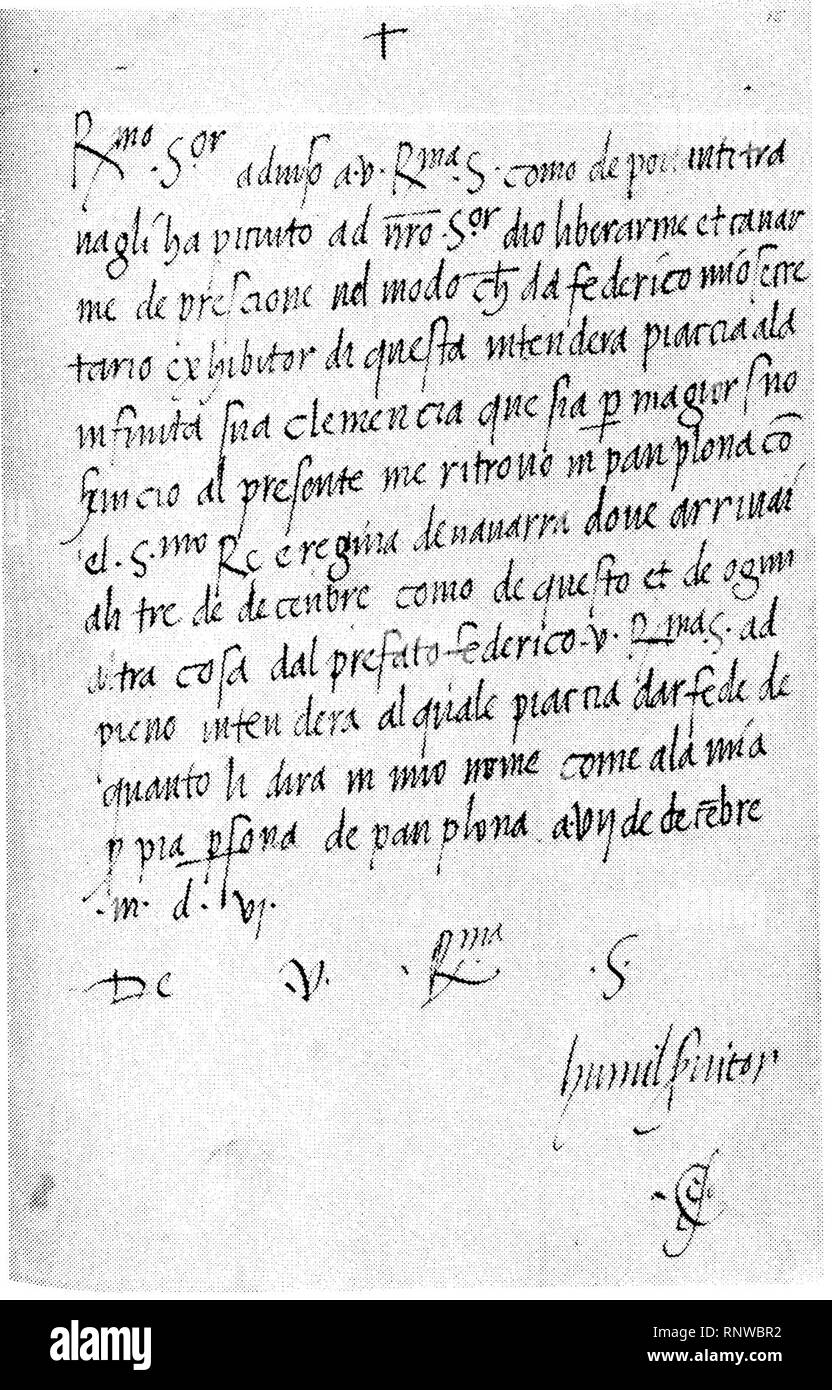 +
Rmo .Sor aduiso a.v. Rma.S. como de poi tra
uagli ha piciuto ad nro .Sor dio liberarme et cauar
me de prescione nel modo ch da federico mio secre
tario exhibitor di questa intendera piaccia ala
infinita sua clemencia que sia p magior suo
seruicio al presente me ritrouo in panplona cō
el .S.mo Re e regina de nauarra doue arriuai
ali tre de decenbre como de questo et de ogni
altra cosa dal prefato federico .v. Rma S. ad
pieno intendera al quale piaccia dar fede de
quanto li dira in mio nome come ala mia
p pia psona de panplona a.vij de decēbre
.m. d. vj.
De .V. Rma .S.
humil seruitor
alamy
Image ID: RNWBR2
www.alamy.com